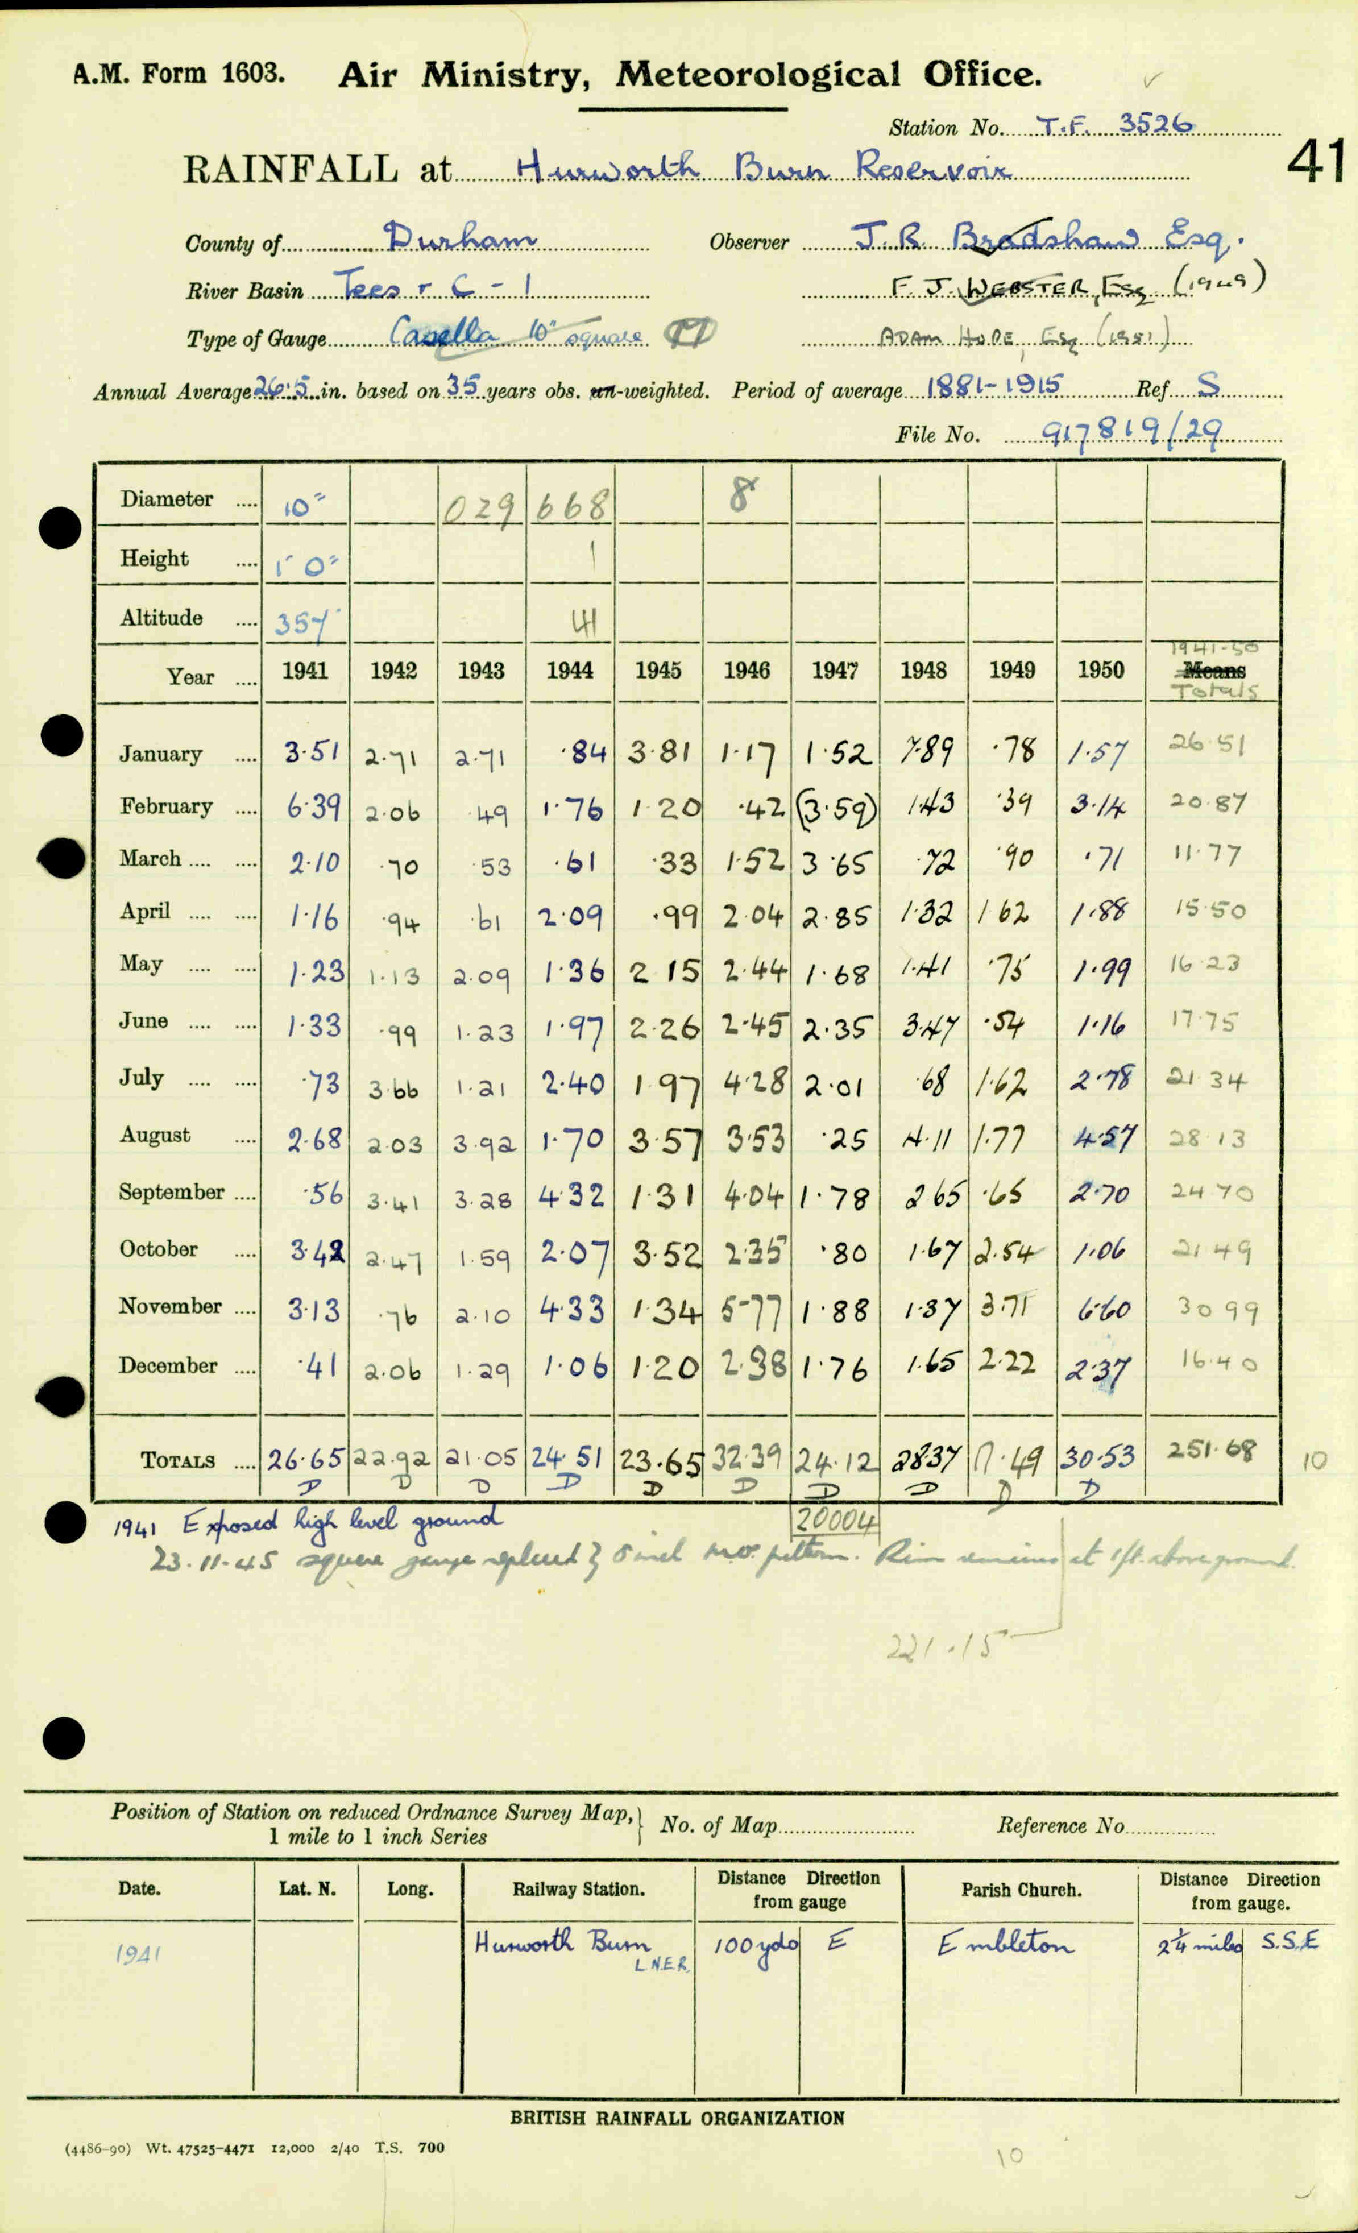 A.M. Form 1603. Air Ministry, Meteorological Office.
Station No. T.F. 3526
41
RAINFALL at Hurworth Burn Reservoir
County of Durham Observer J. R. Bradshaw Esq.
River Basin Tees + C - 1 F. J. WEBSTER, Esq (1949)
Type of Gauge Casella 10" square ADAM HOPE, Esq (1951)
Annual Average 26.5 in. based on 35 years obs. un-weighted. Period of average 1881-1915 Ref. S
File No. 917819/29
Diameter .... 10" 029 668 8
Height .... 1' 0" 1
Altitude .... 357' 41
1941-50
Year .... 1941 1942 1943 1944 1945 1946 1947 1948 1949 1950 Means
Totals
January .... 3.51 2.71 2.71 .84 3.81 1.17 1.52 7.89 .78 1.57 26.51
February .... 6.39 2.06 .49 1.76 1.20 .42 (3.59) 1.43 .39 3.14 20.87
March .... .... 2.10 .70 .53 .61 .33 1.52 3.65 .72 .90 .71 11.77
April .... .... 1.16 .94 .61 2.09 .99 2.04 2.85 1.32 1.62 1.88 15.50
May .... .... 1.23 1.13 2.09 1.36 2.15 2.44 1.68 1.41 .75 1.99 16.23
June .... .... 1.33 .99 1.23 1.97 2.26 2.45 2.35 3.47 .54 1.16 17.75
July .... .... .73 3.66 1.21 2.40 1.97 4.28 2.01 .68 1.62 2.78 21.34
August .... 2.68 2.03 3.92 1.70 3.57 3.53 .25 4.11 1.77 4.57 28.13
September .... .56 3.41 3.28 4.32 1.31 4.04 1.78 2.65 .65 2.70 24.70
October .... 3.42 2.47 1.59 2.07 3.52 2.35 .80 1.67 2.54 1.06 21.49
November .... 3.13 .76 2.10 4.33 1.34 5.77 1.88 1.37 3.71 6.60 30.99
December .... .41 2.06 1.29 1.06 1.20 2.38 1.76 1.65 2.22 2.37 16.40
TOTALS .... 26.65 22.92 21.05 24.51 23.65 32.39 24.12 28.37 17.49 30.53 251.68 10
D D D D D D D D D D
1941 Exposed high level ground 20004
23.11.45 square gauge replaced by 8 inch M.O. pattern. Rim remains at 1 ft. above ground.
221.15
Position of Station on reduced Ordnance Survey Map, 1 mile to 1 inch Series } No. of Map Reference No.
Date. Lat. N. Long. Railway Station. Distance Direction from gauge Parish Church. Distance Direction from gauge.
1941 Hurworth Burn L.N.E.R. 100 yds E Embleton 2¼ miles S.S.E
BRITISH RAINFALL ORGANIZATION
(4486-90) Wt. 47525-4471 12,000 2/40 T.S. 700
10